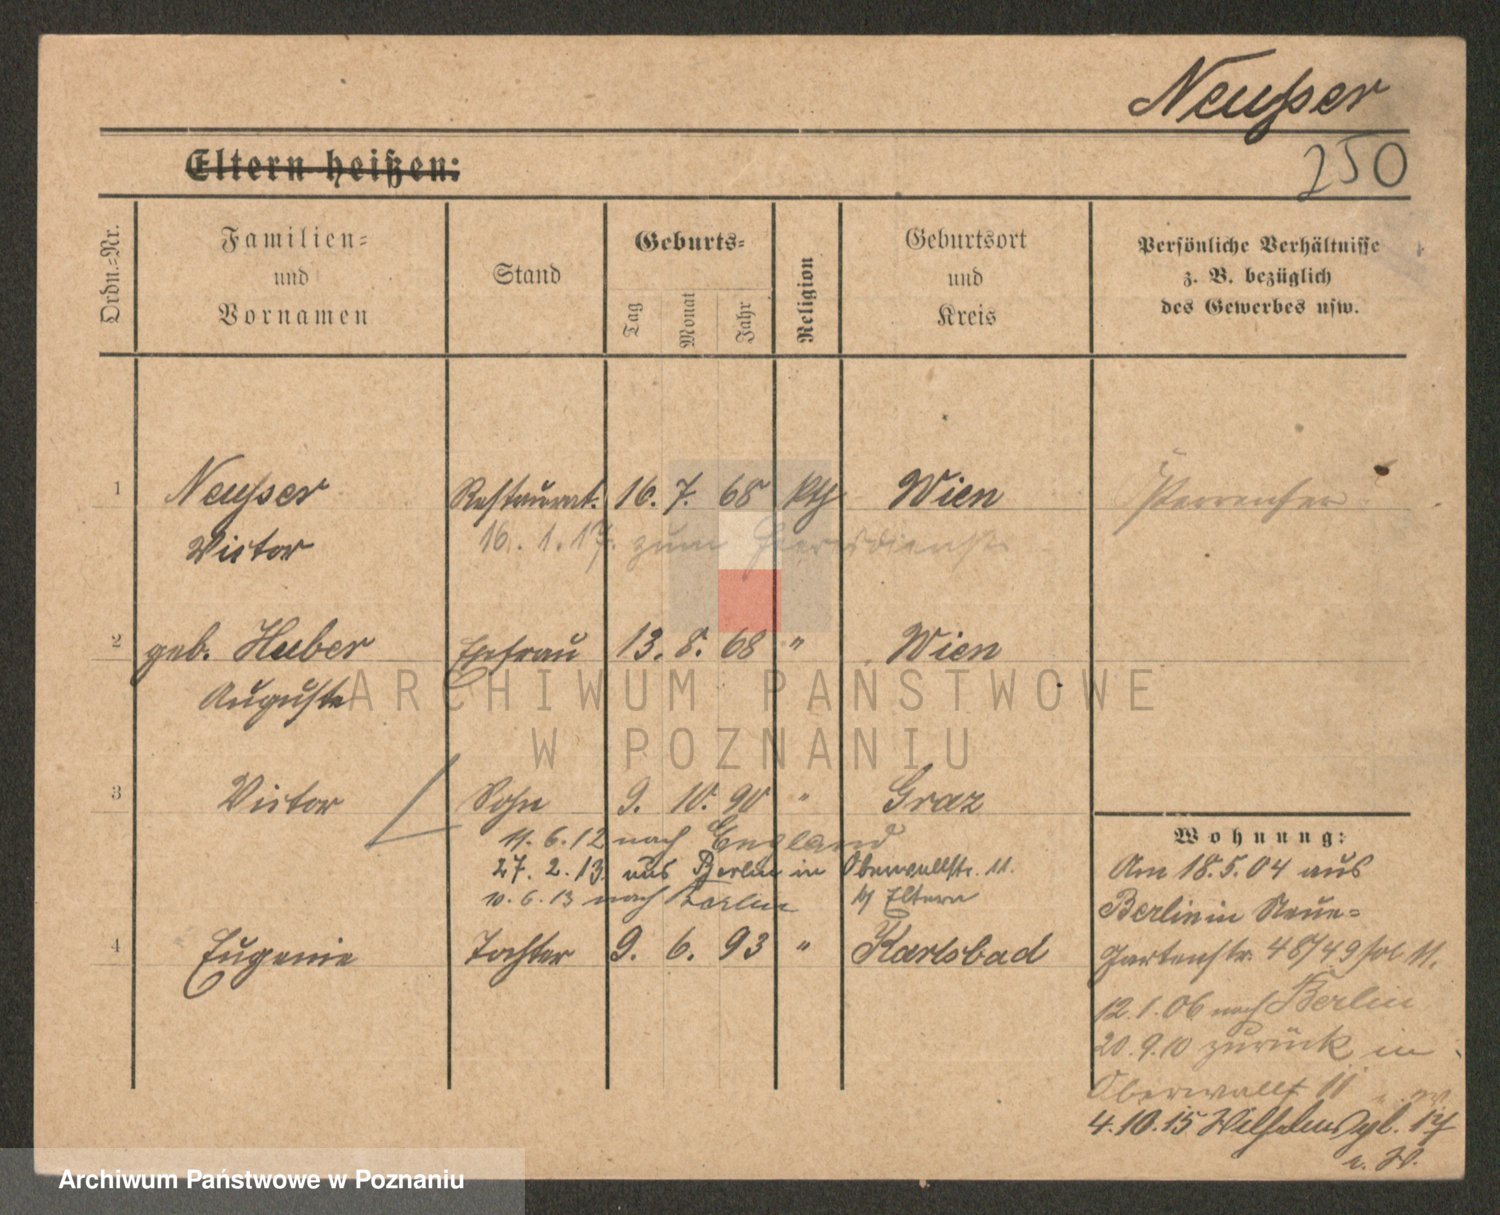 Neußer
250
Eltern heißen:
Ordn.-Nr.
Familien-
und
Vornamen
Stand
Geburts-
Tag
Monat
Jahr
Religion
Geburtsort
und
Kreis
Persönliche Verhältnisse
z. B. bezüglich
des Gewerbes usw.
1 Neußer Restaurat. 16. 7. 68 kth Wien
Victor
16. 1. 17. zum Heeresdienst
2 geb. Huber Ehefrau 13. 8. 68 " Wien
Auguste
ARCHIWUM PAŃSTWOWE
W POZNANIU
3 Victor Sohn 9. 10. 90 " Graz
11. 6. 12 nach England
27. 2. 13. aus Berlin in Oberwallstr. 11.
10. 6. 13 nach Berlin Eltern
4 Eugenie Tochter 9. 6. 93 " Karlsbad
Wohnung:
Am 18. 5. 04 aus
Berlin in Neue-
Gartenstr. 48/49
12. 1. 06 nach Berlin
20. 9. 10 zurück in
Oberwallst 11
4. 10. 15 Wilhelms 17
Archiwum Państwowe w Poznaniu